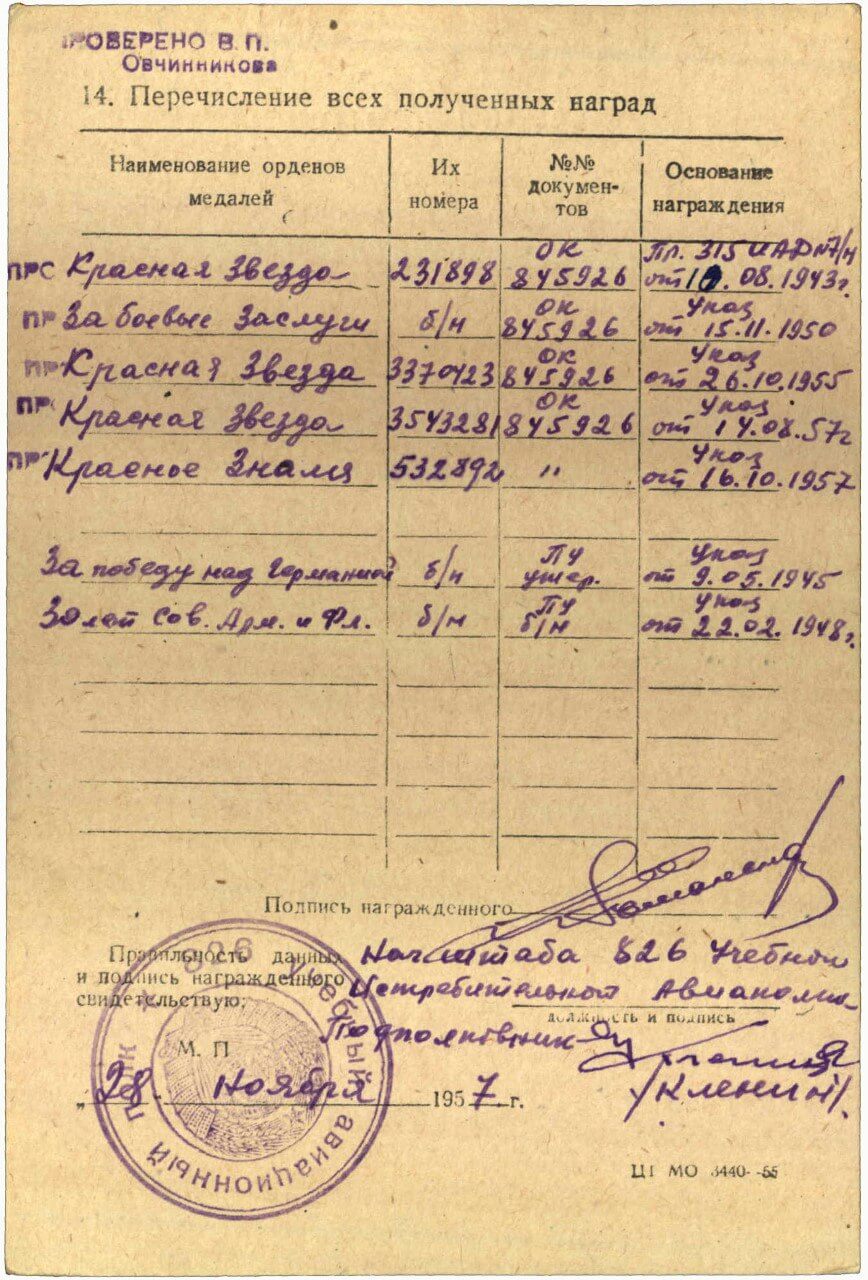 ПРОВЕРЕНО В. П.
Овчинникова
14. Перечисление всех полученных наград
Наименование орденов медалей | Их номера | №№ документов | Основание награждения
ПРС Красная Звезда 231898 ОК 845926 Пр. 315 ИАД №7/н от 10.08.1943г.
ПР За боевые Заслуги б/н ОК 845926 Указ от 15.11.1950
ПР Красная Звезда 3370423 ОК 845926 Указ от 26.10.1955
ПР Красная Звезда 3543281 ОК 845926 Указ от 14.08.57г
ПР Красное Знамя 532892 " Указ от 16.10.1957
За победу над Германией б/н ПУ утер. Указ от 9.05.1945
30 лет Сов. Арм. и Фл. б/н ПУ б/н Указ от 22.02.1948г.
Подпись награжденного
Правильность данных и подпись награжденного свидетельствую:
Нач. штаба 826 Учебного
Истребительного Авиаполка
должность и подпись
Подполковник
М. П
/Кленин/.
„28 Ноября 1957 г.
826 Учебный авиационный полк
ЦТ МО 3440-55